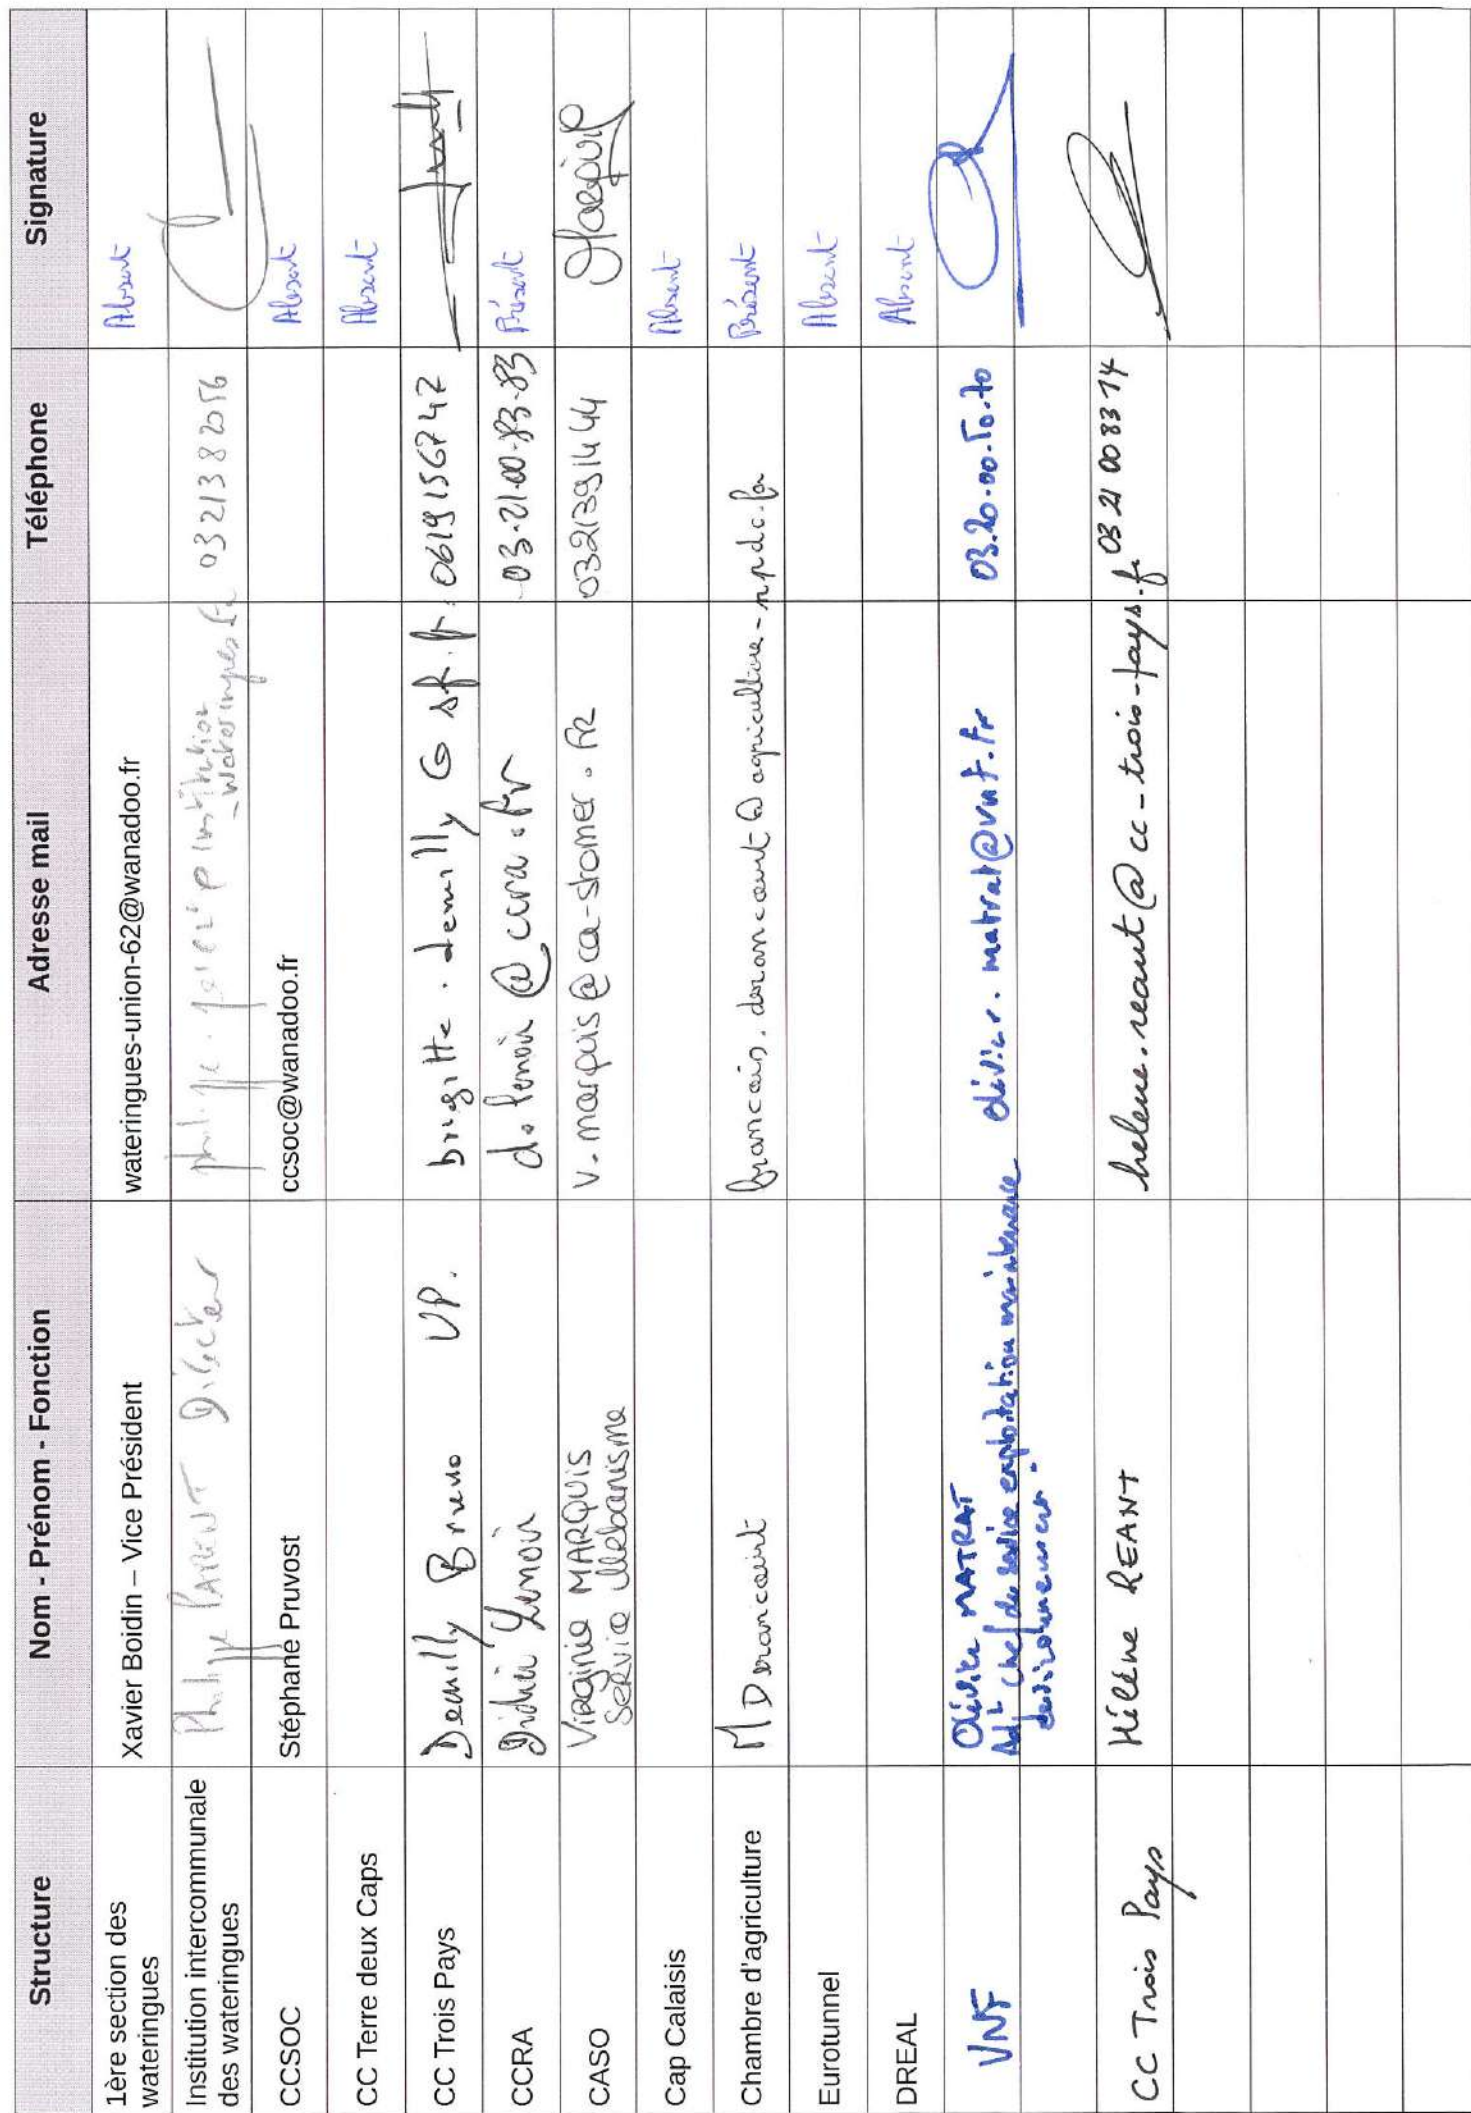 Structure Nom - Prénom - Fonction Adresse mail Téléphone Signature
1ère section des
wateringues
Xavier Boidin – Vice Président wateringues-union-62@wanadoo.fr Absent
Institution intercommunale
des wateringues
Philippe PARENT Directeur 0321382056
CCSOC Stéphane Pruvost ccsoc@wanadoo.fr Absent
CC Terre deux Caps Absent
CC Trois Pays Demilly Bruno VP. brigitte.demilly@sfr.fr 0619156742
CCRA Didier Lenoir d.lenoir@ccra.fr 03.21.00.83.83 Présent
CASO Virginie MARQUIS
Service Urbanisme
v.marquis@ca-stomer.fr 0321391444
Cap Calaisis Absent
Chambre d'agriculture M Derancourt francois.derancourt@agriculture-npdc.fr Présent
Eurotunnel Absent
DREAL Absent
VNF Olivier MATRAT
Adt chef de service exploitation maintenance
environnement.
olivier.matrat@vnf.fr 03.20.00.50.70
CC Trois Pays Hélène REANT helene.reant@cc-trois-pays.fr 03 21 00 83 14